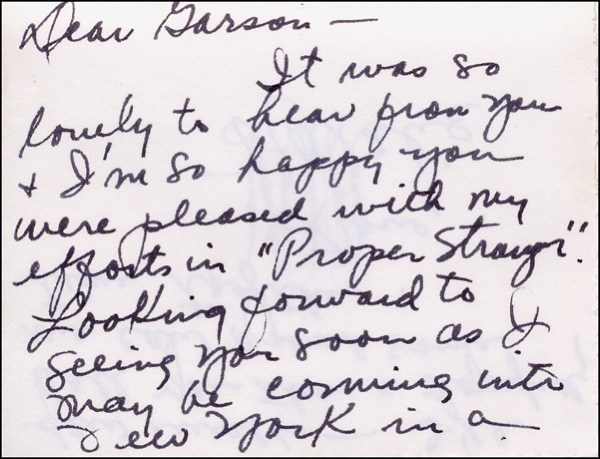 Dear Garson —
It was so
lovely to hear from you
+ I'm so happy you
were pleased with my
efforts in "Proper Stranger".
Looking forward to
seeing you soon as I
may be coming into
New York in a